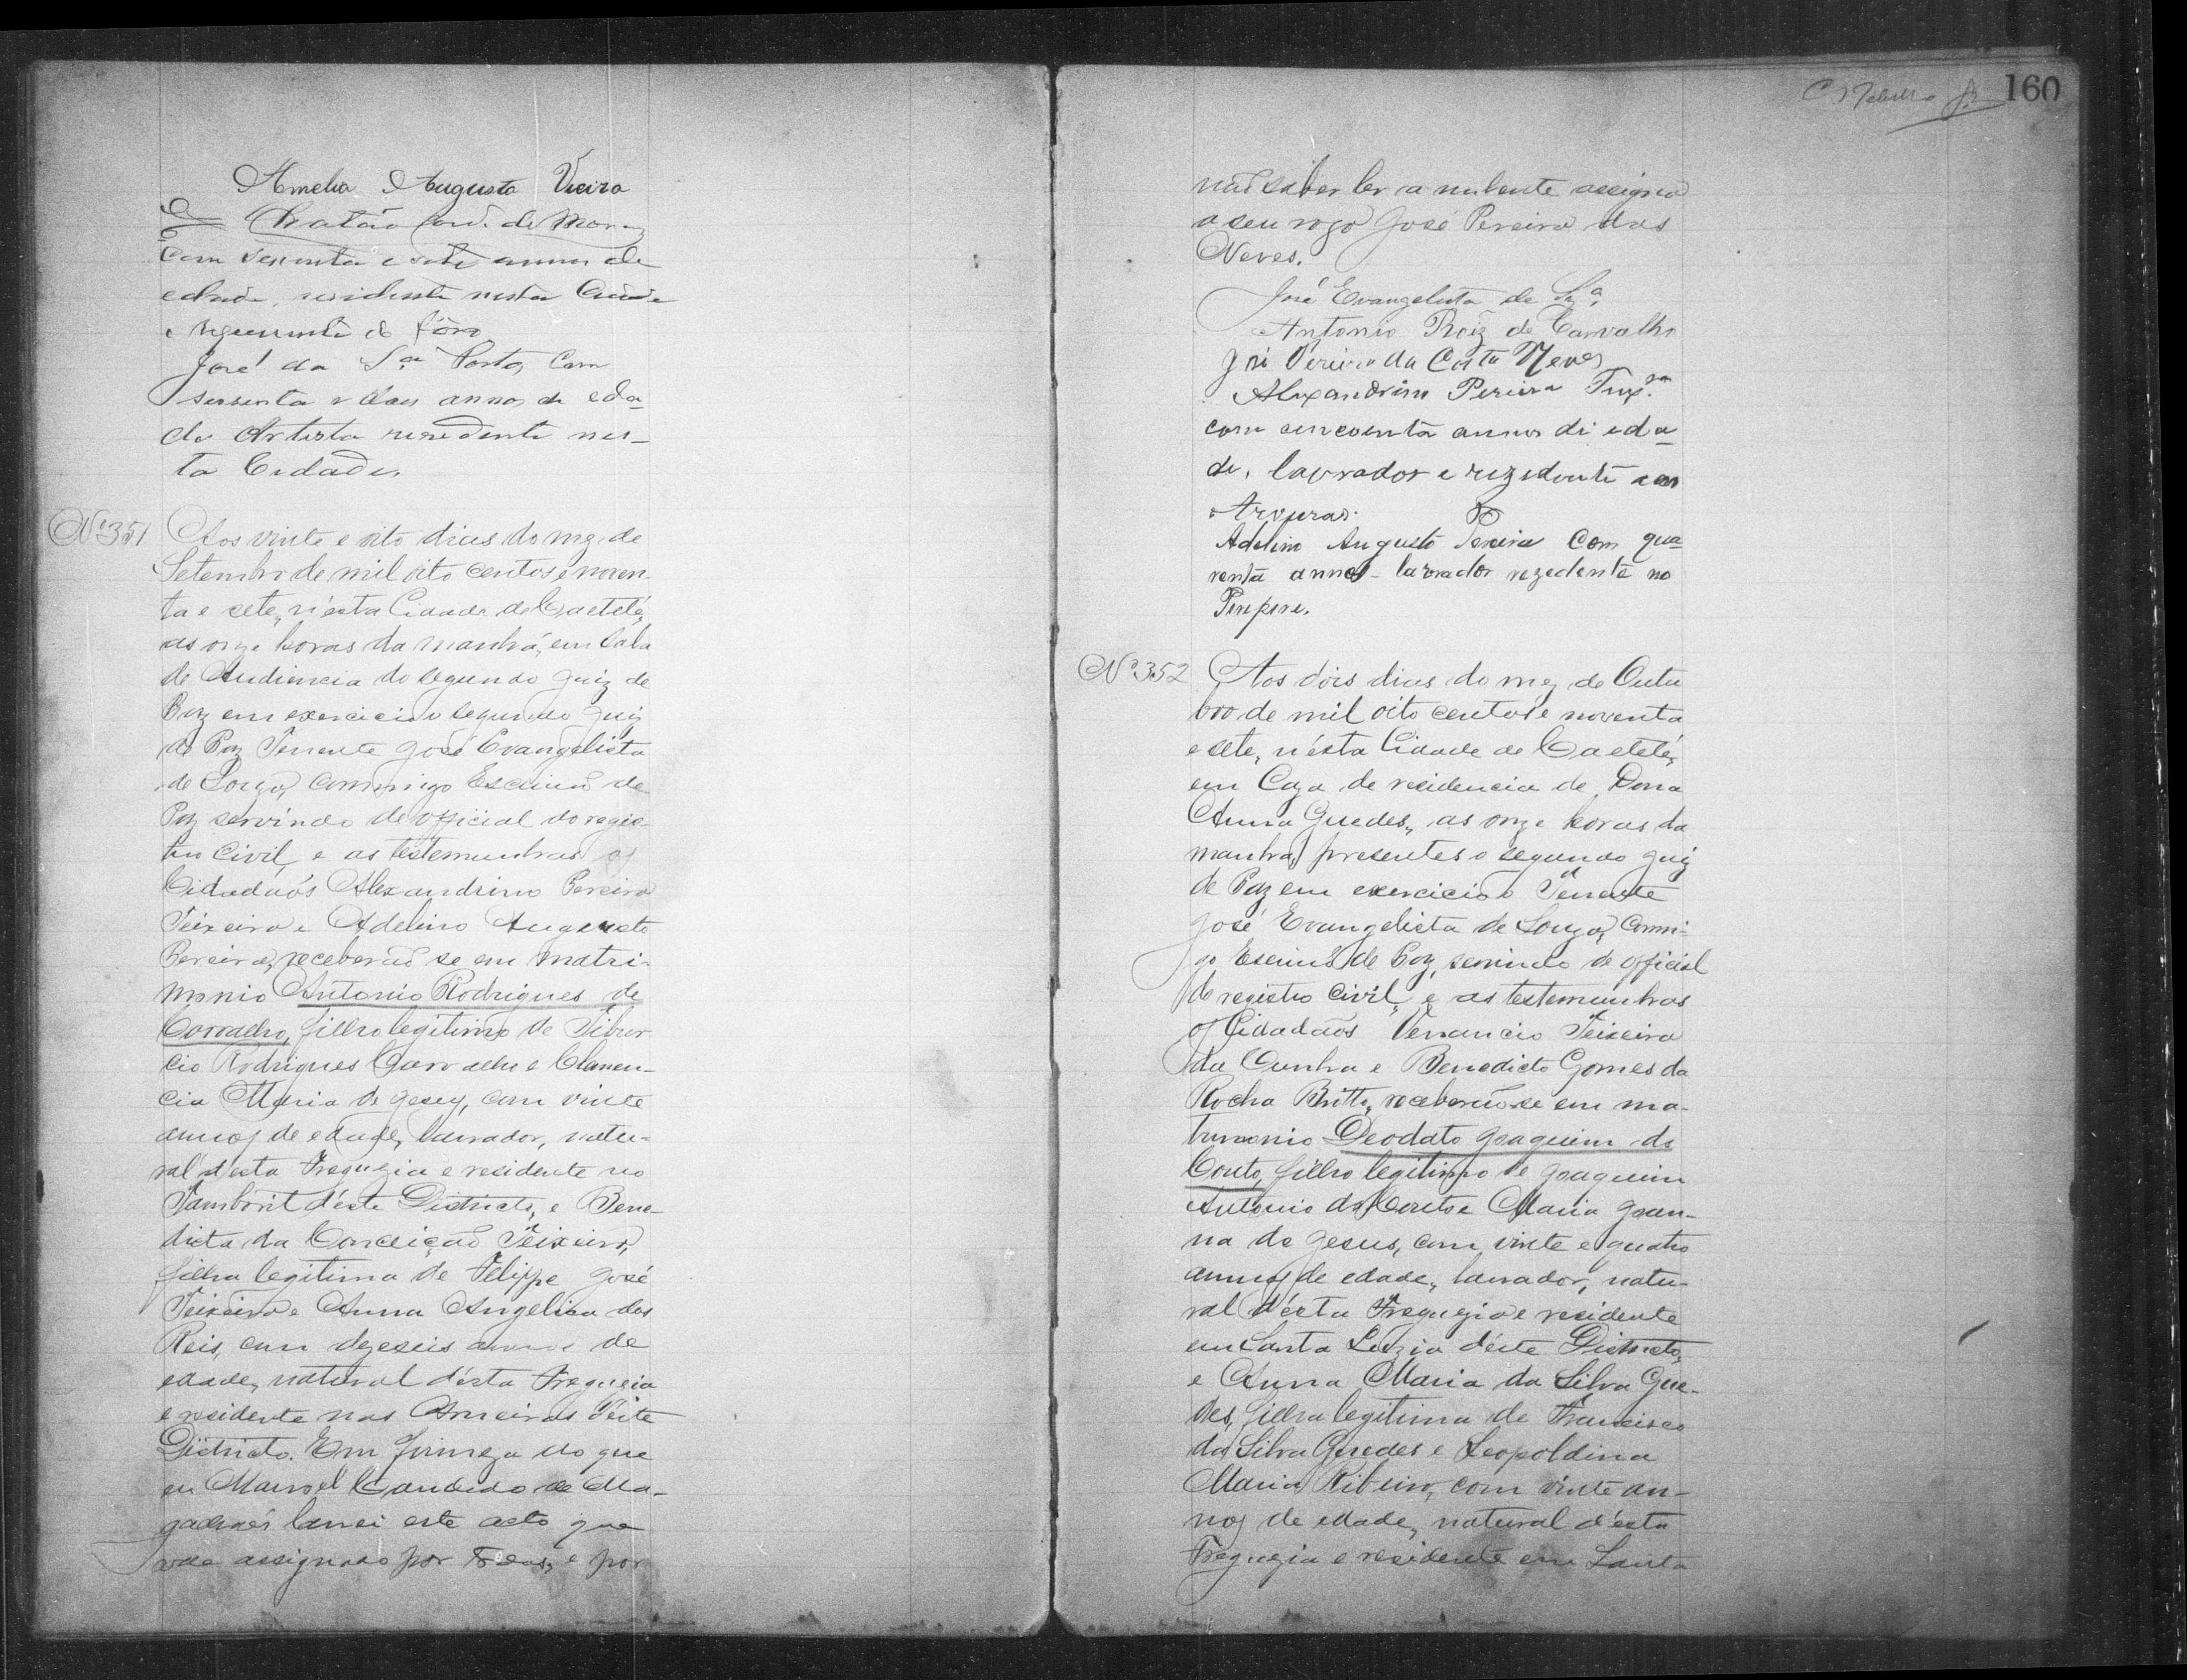 Amelia Augusta Vieira
com sessenta e sete annos de
edade, residente nesta Cidade
José da S.ª Porto, com
sessenta e dous annos de eda-
de Artista residente nes-
ta Cidade.
Nº 351 Aos vinte e oito dias do mez de
Setembro de mil oito centos e noven-
ta e sete, n'esta Cidade de Caeteté,
as onze horas da manhã, em Sala
de Audiencia do segundo Juiz de
Paz em exercicio o segundo Juiz
de Paz Tenente José Evangelista
de Souza, commigo Escrivão de
Paz servindo de official do regis-
tro Civil, e as testemunhas os
Cidadãos Alexandrino Pereira
Teixeira e Adelino Augusto
Pereira, receberão se em matri-
monio Antonio Rodrigues de
Carvalho, filho legitimo de Tibur
cio Rodrigues Carvalho e Clemen-
cia Maria de Jesus, com vinte
annos de edade, lavrador, natu-
ral d'esta Freguezia e residente no
Tamboril d'éste Districto, e Bene-
dicta da Conceição Teixeira,
filha legitima de Felippe José
Teixeira e Anna Angelica dos
Reis, com dezeseis annos de
edade, natural d'ésta Freguezia
e residente nas Aroeiras d'éste
Districto. Em firmeza do que
eu Manoel Candido de Ma-
galhães lavrei este acto que
vae assignado por todos, e por
160
não saber ler a nubente assigna
a seu rogo José Pereira das
Neves.
José Evangelista de Sz.ª
Antonio Roiz de Carvalho
José Pereira da Costa Neves
Alexandrino Pereira Teix.ra
com cincoenta annos di eda-
de, lavrador e rezidente nas
Aroeiras.
Adelino Augusto Pereira Com qua-
renta annos lavrador rezedente no
Nº 352 Aos dois dias do mez de Outu
bro de mil oito centos e noventa
e sete, n'ésta Cidade de Caeteté,
em Caza de residencia de Dona
Anna Guedes, as onze horas da
manhã, presentes o segundo Juiz
de Paz em exercicio o Tenente
José Evangelista de Souza, Commi-
go Escrivão de Paz, servindo de official
do registro Civil, e as testemunhas
os Cidadãos Venancio Teixeira
da Cunha e Benedicto Gomes da
Rocha Britto, receberão-se em ma-
trimonio Deodato Joaquim do
Couto, filho legitimo de Joaquim
Antonio do Couto e Maria Joan-
na de Jesus, com vinte e quatro
annos de edade, lavrador, natu-
ral d'ésta Freguezia e residente
em Santa Luzia d'éste Districto,
e Anna Maria da Silva Gue-
des, filha legitima de Francisco
da Silva Guedes e Leopoldina
Maria Ribeiro, com vinte an-
nos de edade, natural d'ésta
Freguezia e residente em Santa